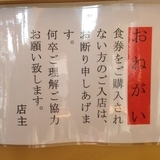 おねがい
食券をご購入され
ない方のご入店は、
お断り申しあげま
す。
何卒ご理解ご協力
お願い致します。
店主